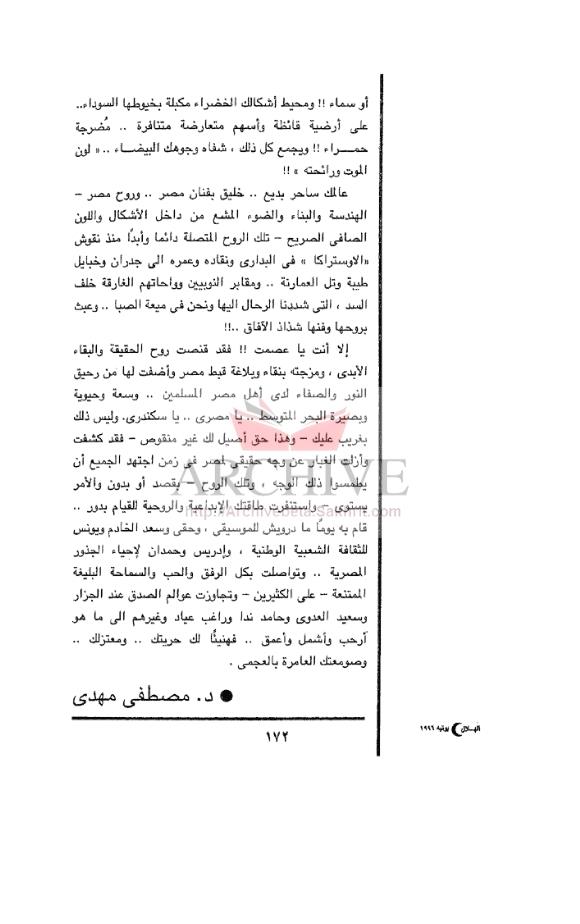 أو سماء !! ومحيط أشكالك الخضراء مكبلة بخيوطها السوداء..
على أرضية قائظة وأسهم متعارضة متنافرة .. مُضرجة
حمـــراء !! ويجمع كل ذلك ، شفاه وجوهك البيضـاء .. « لون
الموت ورائحته » !!
عالمك ساحر بديع .. خليق بفنان مصر .. وروح مصر –
الهندسة والبناء والضوء المشع من داخل الأشكال واللون
الصافى الصريح – تلك الروح المتصلة دائما وأبدًا منذ نقوش
«الاوستراكا » فى البدارى ونقاده وعمره الى جدران وخبايل
طيبة وتل العمارنة .. ومقابر النوبيين وواحاتهم الغارقة خلف
السد ، التى شددنا الرحال اليها ونحن فى ميعة الصبا .. وعبث
بروحها وفنها شذاذ الآفاق ..!!
إلا أنت يا عصمت !! فقد قنصت روح الحقيقة والبقاء
الأبدى ، ومزجته بنقاء وبلاغة قبط مصر وأضفت لها من رحيق
النور والصفاء لدى أهل مصر المسلمين .. وسعة وحيوية
وبصيرة البحر المتوسط .. يا مصرى .. يا سكندرى. وليس ذلك
بغريب عليك – وهذا حق أصيل لك غير منقوص – فقد كشفت
وأزلت الغبار عن وجه حقيقى لمصر فى زمن اجتهد الجميع أن
يطمسوا ذلك الوجه ، وتلك الروح – بقصد أو بدون والأمر
يستوى – واستنفرت طاقتك الإبداعية والروحية للقيام بدور ..
قام به يومًا ما درويش للموسيقى ، وحقى وسعد الخادم ويونس
للثقافة الشعبية الوطنية ، وإدريس وحمدان لإحياء الجذور
المصرية .. وتواصلت بكل الرفق والحب والسماحة البليغة
الممتنعة – على الكثيرين – وتجاوزت عوالم الصدق عند الجزار
وسعيد العدوى وحامد ندا وراغب عياد وغيرهم الى ما هو
أرحب وأشمل وأعمق .. فهنيئًا لك حريتك .. ومعتزلك ..
وصومعتك العامرة بالعجمى .
● د. مصطفى مهدى
١٧٢
الهلال يونيه ١٩٩٦
ARCHIVE
http://Archivebeta.Sakhrit.com